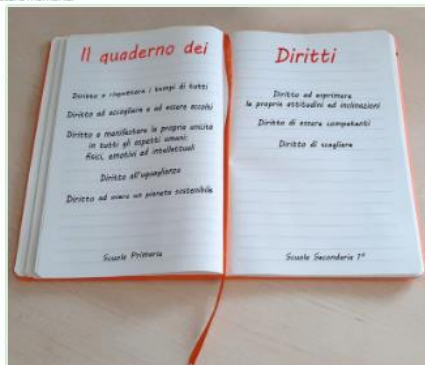 Il quaderno dei
Diritto a rispettare i tempi di tutti
Diritto ad accogliere e ad essere accolti
Diritto a manifestare la propria unicità
in tutti gli aspetti umani:
fisici, emotivi ed intellettuali
Diritto all'uguaglianza
Diritto ad avere un pianeta sostenibile
Scuola Primaria
Diritti
Diritto ad esprimere
le proprie attitudini ed inclinazioni
Diritto di essere competenti
Diritto di scegliere
Scuola Secondaria 1°